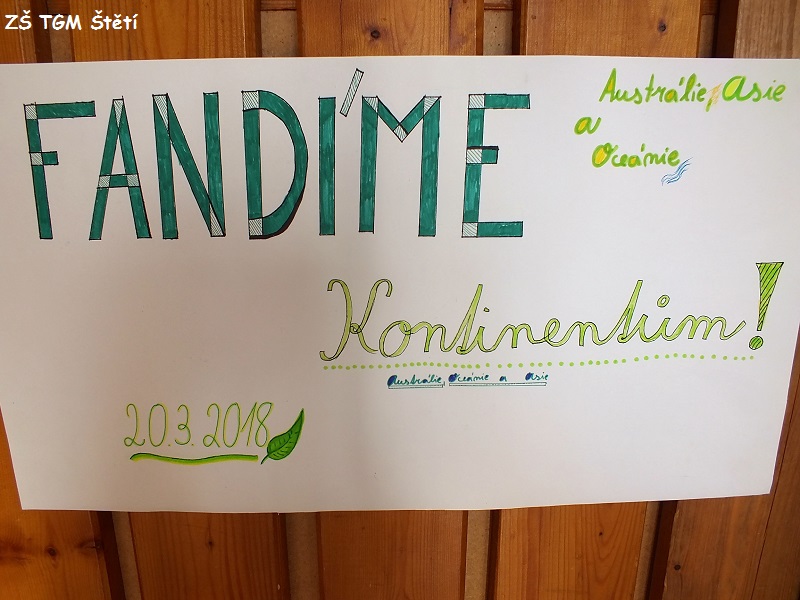 ZŠ TGM Štětí
FANDÍME
Austrálie, Asie
a
Oceánie
Kontinentům!
Austrálie, Oceánie a Asie
20.3.2018